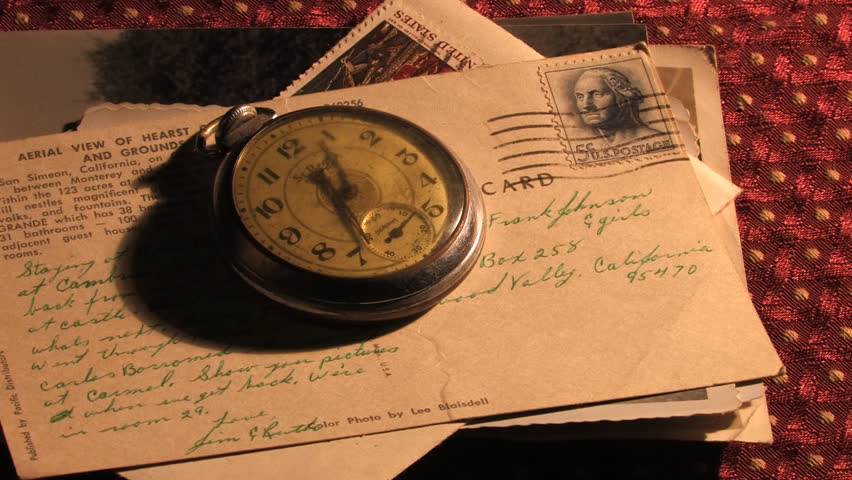 UNITED STATES
AERIAL VIEW OF HEARST
AND GROUNDS
San Simeon, California, on
between Monterey and
Within the 123 acres at
ill nestles magnificent
walks, and fountains. The
GRANDE which has 38 bed
31 bathrooms 100
adjacent guest hous
rooms.
Staying at
at Cambr
back from
at castle
whats next
went through
Carlos Borromeo
at Carmel. Show you pictures
when we get back. We're
in room 29.
Love,
Jim & Ruth
Published by Pacific Distributors
Color Photo by Lee Blaisdell
CARD
5¢ U.S. POSTAGE
Frank Johnson
& girls
Box 258
wood Valley, California
95470
12 1 2 4 5 7 8 9 10